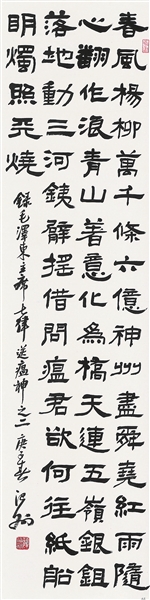 春風楊柳萬千條六億神州盡舜堯紅雨隨
心翻作浪青山著意化為橋天連五嶺銀鉏
落地動三河銕臂搖借問瘟君欲何往紙船
明燭照天燒
錄毛澤東主席七律送瘟神之二 庚子春